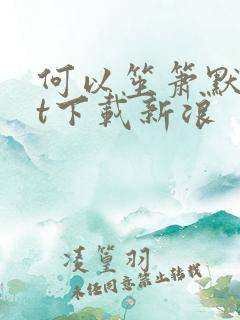 何以笙箫默
t下载新浪
凌篁羽
未经同意禁止转载